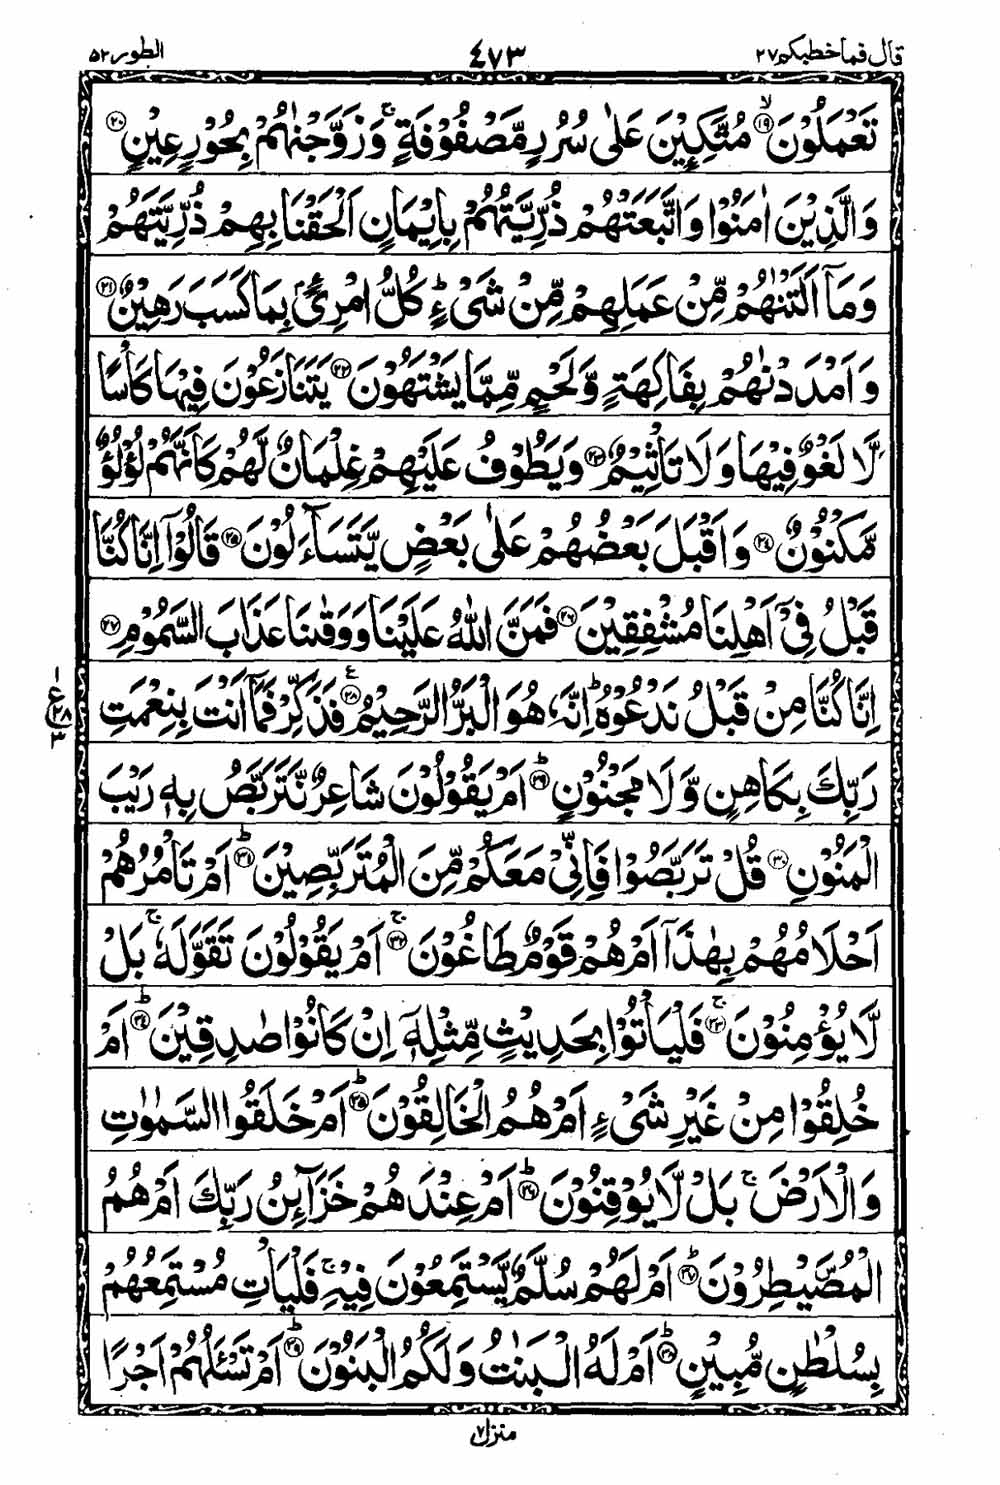 قال فما خطبكم ٢٧ ٤٧٣ الطور ٥٢
تَعْمَلُوْنَ ۙ﴿۱۹﴾ مُتَّكِـِٕيْنَ عَلٰى سُرُرٍ مَّصْفُوْفَةٍ ۚ وَزَوَّجْنٰهُمْ بِحُوْرٍ عِيْنٍ ﴿۲۰﴾
وَالَّذِيْنَ اٰمَنُوْا وَاتَّبَعَتْهُمْ ذُرِّيَّتُهُمْ بِاِيْمَانٍ اَلْحَقْنَا بِهِمْ ذُرِّيَّتَهُمْ
وَمَاۤ اَلَتْنٰهُمْ مِّنْ عَمَلِهِمْ مِّنْ شَىْءٍ ؕ كُلُّ امْرِیًٴۢ بِمَا كَسَبَ رَهِيْنٌ ﴿۲۱﴾
وَاَمْدَدْنٰهُمْ بِفَاكِهَةٍ وَّلَحْمٍ مِّمَّا يَشْتَهُوْنَ ﴿۲۲﴾ يَتَنَازَعُوْنَ فِيْهَا كَاْسًا
لَّا لَغْوٌ فِيْهَا وَلَا تَاْثِيْمٌ ﴿۲۳﴾ وَيَطُوْفُ عَلَيْهِمْ غِلْمَانٌ لَّهُمْ كَاَنَّهُمْ لُؤْلُؤٌ
مَّكْنُوْنٌ ﴿۲۴﴾ وَاَقْبَلَ بَعْضُهُمْ عَلٰى بَعْضٍ يَّتَسَآءَلُوْنَ ﴿۲۵﴾ قَالُوْۤا اِنَّا كُنَّا
قَبْلُ فِىْۤ اَهْلِنَا مُشْفِقِيْنَ ﴿۲۶﴾ فَمَنَّ اللّٰهُ عَلَيْنَا وَوَقٰىنَا عَذَابَ السَّمُوْمِ ﴿۲۷﴾
اِنَّا كُنَّا مِنْ قَبْلُ نَدْعُوْهُ ؕ اِنَّهٗ هُوَ الْبَرُّ الرَّحِيْمُ ﴿۲۸﴾ ع فَذَكِّرْ فَمَاۤ اَنْتَ بِنِعْمَتِ
١ ع ٢٨ ٣
رَبِّكَ بِكَاهِنٍ وَّلَا مَجْنُوْنٍ ؕ﴿۲۹﴾ اَمْ يَقُوْلُوْنَ شَاعِرٌ نَّتَرَبَّصُ بِهٖ رَيْبَ
الْمَنُوْنِ ﴿۳۰﴾ قُلْ تَرَبَّصُوْا فَاِنِّىْ مَعَكُمْ مِّنَ الْمُتَرَبِّصِيْنَ ؕ﴿۳۱﴾ اَمْ تَاْمُرُهُمْ
اَحْلَامُهُمْ بِهٰذَاۤ اَمْ هُمْ قَوْمٌ طَاغُوْنَ ۚ﴿۳۲﴾ اَمْ يَقُوْلُوْنَ تَقَوَّلَهٗ ۚ بَلْ
لَّا يُؤْمِنُوْنَ ۚ﴿۳۳﴾ فَلْيَاْتُوْا بِحَدِيْثٍ مِّثْلِهٖۤ اِنْ كَانُوْا صٰدِقِيْنَ ؕ﴿۳۴﴾ اَمْ
خُلِقُوْا مِنْ غَيْرِ شَىْءٍ اَمْ هُمُ الْخَالِقُوْنَ ؕ﴿۳۵﴾ اَمْ خَلَقُوا السَّمٰوٰتِ
وَالْاَرْضَ ۚ بَلْ لَّا يُوْقِنُوْنَ ؕ﴿۳۶﴾ اَمْ عِنْدَهُمْ خَزَآئِنُ رَبِّكَ اَمْ هُمُ
الْمُصَۜيْطِرُوْنَ ؕ﴿۳۷﴾ اَمْ لَهُمْ سُلَّمٌ يَّسْتَمِعُوْنَ فِيْهِ ۚ فَلْيَاْتِ مُسْتَمِعُهُمْ
بِسُلْطٰنٍ مُّبِيْنٍ ؕ﴿۳۸﴾ اَمْ لَهُ الْبَنٰتُ وَلَكُمُ الْبَنُوْنَ ؕ﴿۳۹﴾ اَمْ تَسْئَلُهُمْ اَجْرًا
منزل ٧